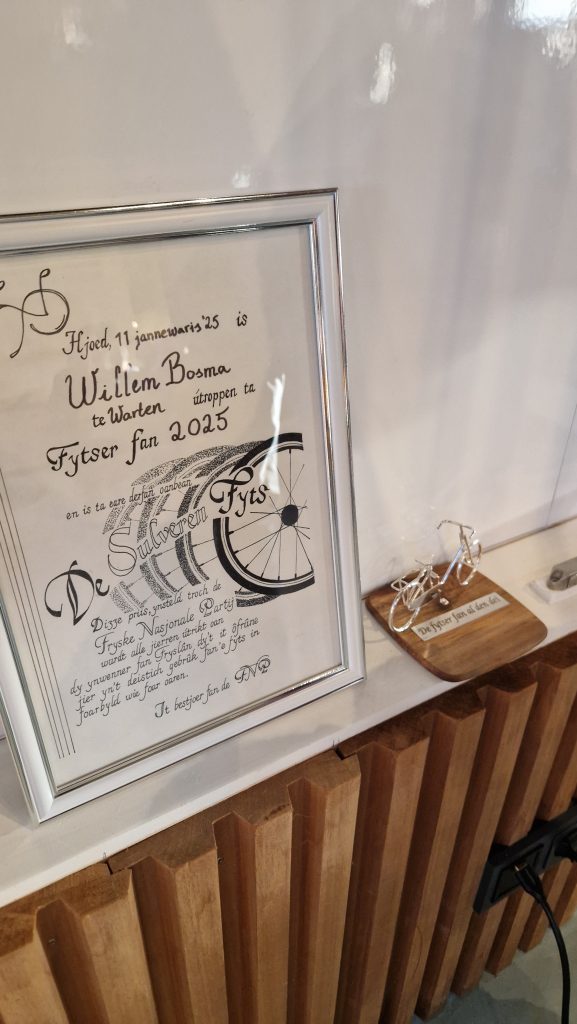 Hjoed, 11 jannewaris '25 is
Willem Bosma
te Warten útroppen ta
Fytser fan 2025
en is ta eare derfan oanbean
De Sulveren Fyts
Disze priis, ynsteld troch de
Fryske Nasjonale Partij
wurdt alle jierren útrikt oan
dy ynwenner fan Fryslân dy't it ôfrûne
jier yn't deistich gebrûk fan'e fyts in
foarbyld wie foar oaren.
It bestjoer fan de FNP
De fytser fan al den dei